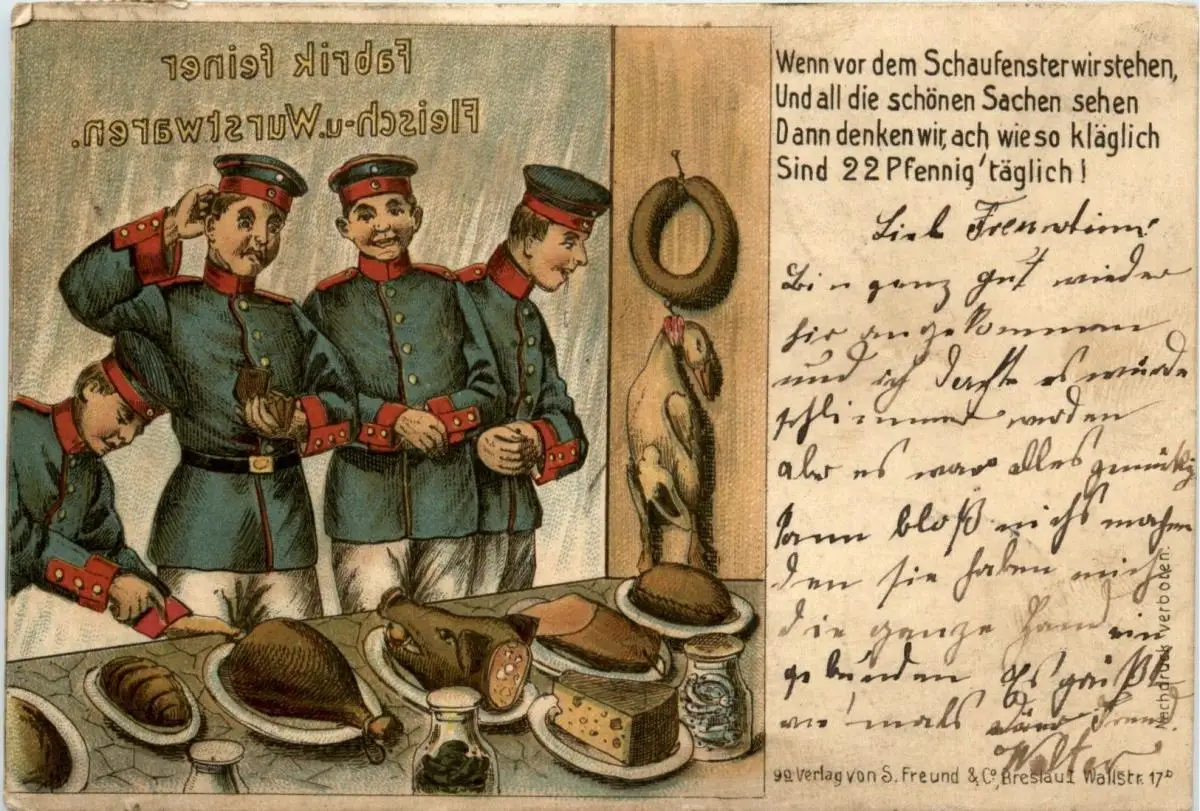 Fabrik feiner
Fleisch-u.Wurstwaren.
Wenn vor dem Schaufenster wir stehen,
Und all die schönen Sachen sehen
Dann denken wir, ach, wie so kläglich
Sind 22 Pfennig' täglich!
Bin ganz gut wieder
hir angekommen
und ich dachte es würde
schlimmer werden
aber es war alles
kann bloß nichs machen
den sie haben mich
die ganze Hand ein
gebunden Es grüßt
vielmals Freund
Walter
Nachdruck verboten.
92 Verlag von S. Freund & Co, Breslau I Wallstr. 17b